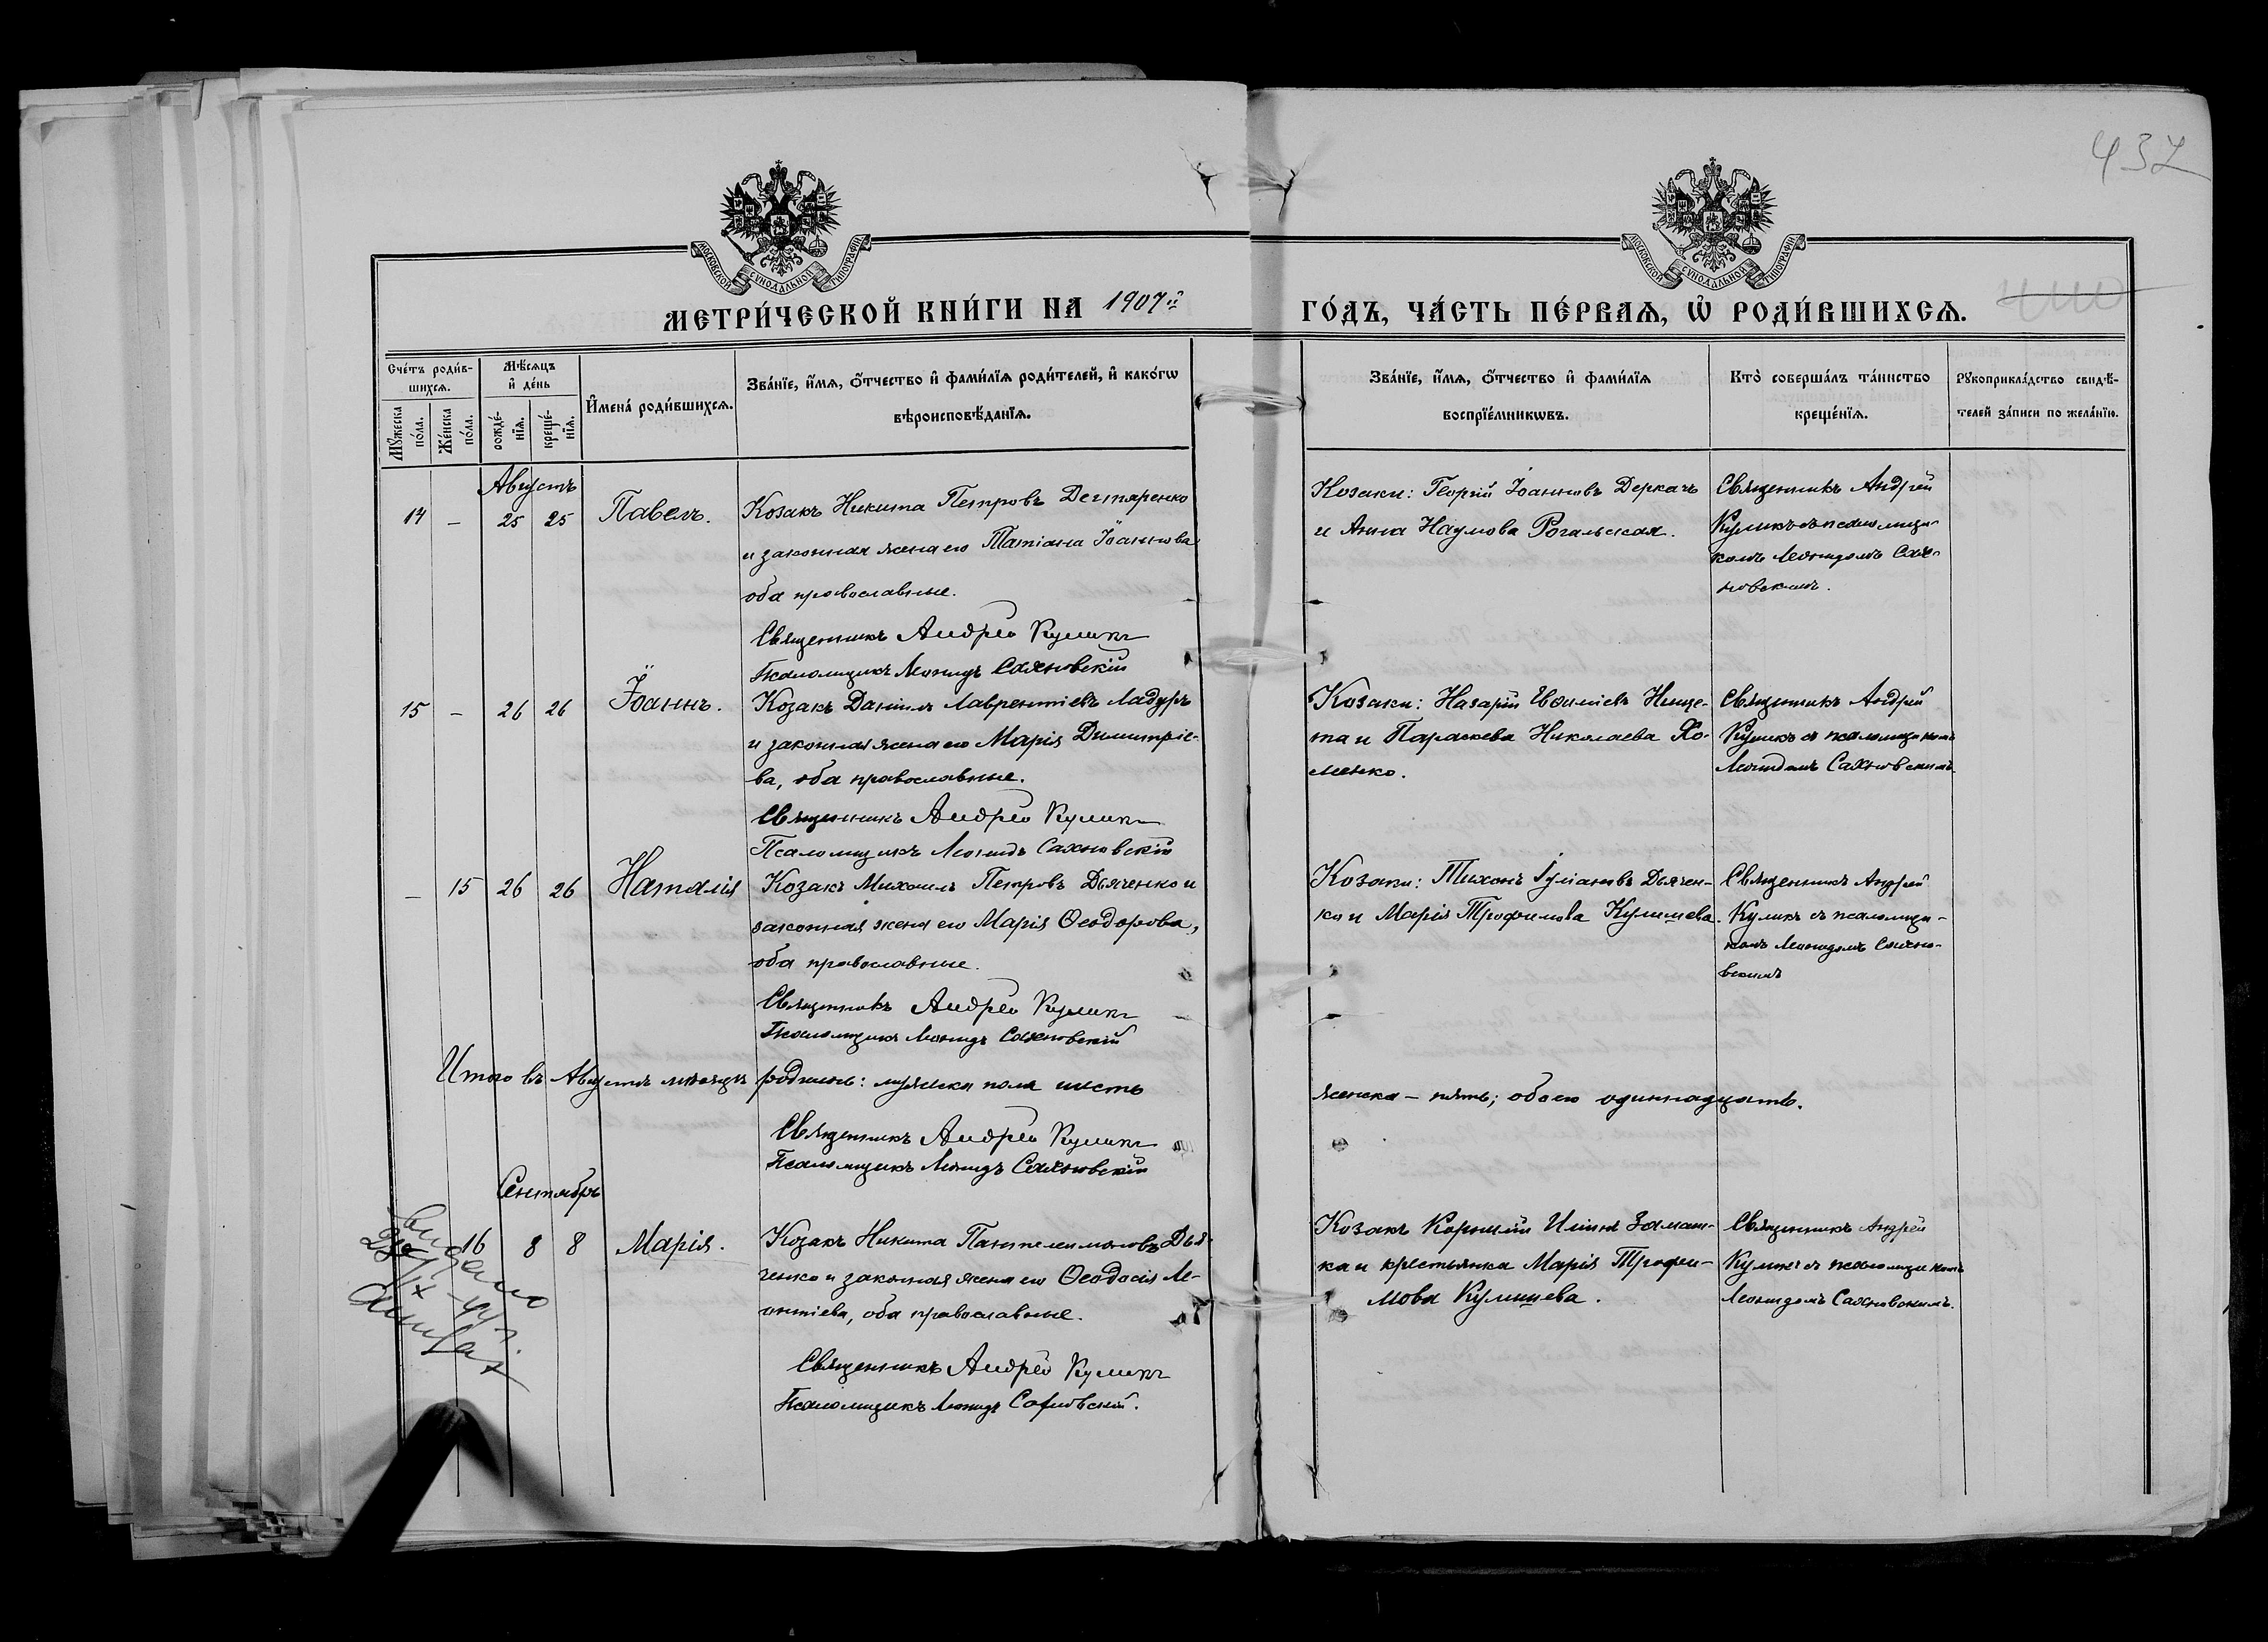 437
МОСКОВСКОЙ СѴНОДАЛЬНОЙ ТИПОГРАФІИ
МОСКОВСКОЙ СѴНОДАЛЬНОЙ ТИПОГРАФІИ
МЕТРИ́ЧЕСКОЙ КНИ́ГИ НА 1907й ГО́ДЪ, ЧА́СТЬ ПЕ́РВАѦ, Ѽ РОДИ́ВШИХСѦ.
Сче́тъ роди́в-
шихсѧ.
Мꙋжеска по́ла.
Же́нска по́ла.
Мѣ́сѧцъ
и҆ де́нь
рожде́-
нїѧ.
креще́-
нїѧ.
И҆мена́ роди́вшихсѧ.
Зва́нїе, и҆́мѧ, ѻ҆́тчество и҆ фами́лїѧ роди́телей, и҆ како́гѡ
вѣроисповѣ́данїѧ.
Зва́нїе, и҆́мѧ, ѻ҆́тчество и҆ фами́лїѧ
воспрїе́мникѡвъ.
Кто̀ соверша́лъ та́инство
креще́нїѧ.
Рꙋкоприкла́дство свидѣ́-
телей за́писи по жела́нїю.
Августъ
14 – 25 25 Павелъ.
Козакъ Никита Петровъ Дегтяренко
и законная жена его Татіана Іоаннова
оба православные.
Священникъ Андрей Куликъ
Псаломщикъ Леонидъ Сахновскій
Козаки: Георгій Іоанновъ Деркачъ
и Анна Наумова Рогальская.
Священникъ Андрей
Куликъ съ псаломщи-
комъ Леонидомъ Сах-
новскимъ.
15 – 26 26 Іоаннъ.
Козакъ Даніилъ Лаврентіевъ Ладуръ
и законная жена его Марія Димитріе-
ва, оба православные.
Священникъ Андрей Куликъ
Псаломщикъ Леонидъ Сахновскій
Козаки: Назарій Нище-
та и Параскева Николаева Хо-
менко.
Священникъ Андрей
Куликъ съ псаломщикомъ
Леонидомъ Сахновскимъ.
– 15 26 26 Наталія
Козакъ Михаилъ Петровъ Дьяченко и
законная жена его Марія Ѳеодорова,
оба православные.
Священникъ Андрей Куликъ
Псаломщикъ Леонидъ Сахновскій
Козаки: Тихонъ Іуліановъ Дьячен-
ко и Марія Трофимова Кулишева.
Священникъ Андрей
Куликъ съ псаломщи-
комъ Леонидомъ Сахно-
вскимъ
Итого въ Августѣ мѣсяцѣ родилось: мужеска пола шесть
женска – пять; обоего одиннадцать.
Священникъ Андрей Куликъ
Псаломщикъ Леонидъ Сахновскій
Сентябрь
16 8 8 Марія.
Козакъ Никита Пантелеимоновъ Дья-
ченко и законная жена его Ѳеодосія Ле-
онтіева, оба православные.
Священникъ Андрей Куликъ
Псаломщикъ Леонидъ Сахновскій.
Козакъ Корнилій Илiинъ Замаш-
ка и крестьянка Марія Трофи-
мова Кулишева.
Священникъ Андрей
Куликъ съ псаломщикомъ
Леонидомъ Сахновскимъ.
видано